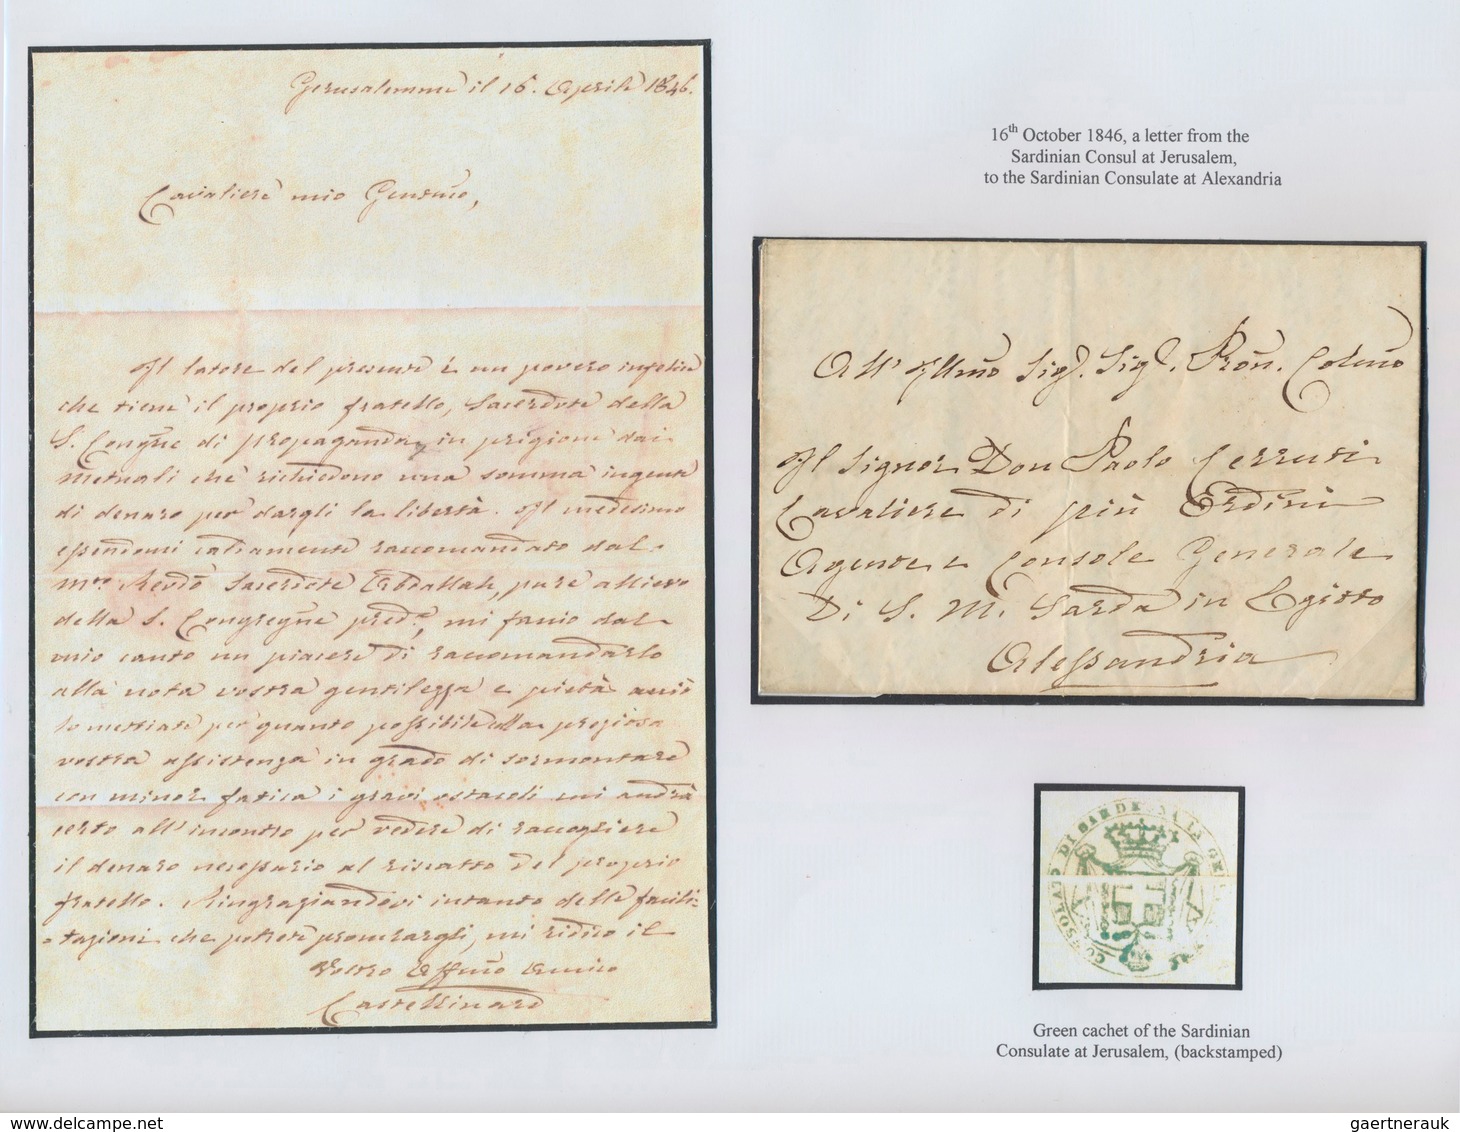 Gerusalemme il 16. Aprile 1846.
Cavaliere mio Gentmo,
Il latore del presente è un povero infelice
che tiene il proprio fratello, Sacerdote della
S. Congne di propaganda, in prigione dai
Metuali che richiedono una somma ingente
di denaro per dargli la libertà. Il medesimo
essendomi caldamente raccomandato dal
Mto Revdo Sacerdote Abdallah, pure allievo
della S. Congregne predta, mi faccio dal
mio canto un piacere di raccomandarlo
alla nota vostra gentilezza e pietà acciò
lo mettiate per quanto possibile colla preziosa
vostra assistenza in grado di sormontare
con minor fatica i gravi ostacoli cui andrà
certo all'incontro per vedere di raccogliere
il denaro necessario al riscatto del proprio
fratello. Ringraziandovi intanto delle facili-
tazioni che potrete procurargli, mi ridico il
Vostro Affmo Amico
Castellinard
16th October 1846, a letter from the
Sardinian Consul at Jerusalem,
to the Sardinian Consulate at Alexandria
All' Illmo Sigr. Sigr. Pron. Colmo
Il Signor Don Paolo Cerruti
Cavaliere di più Ordini
Agente e Console Generale
Di S. M. Sarda in Egitto
Alessandria
CONSOLATO DI SARDEGNA IN GE
Green cachet of the Sardinian
Consulate at Jerusalem, (backstamped)
gaertnerauk